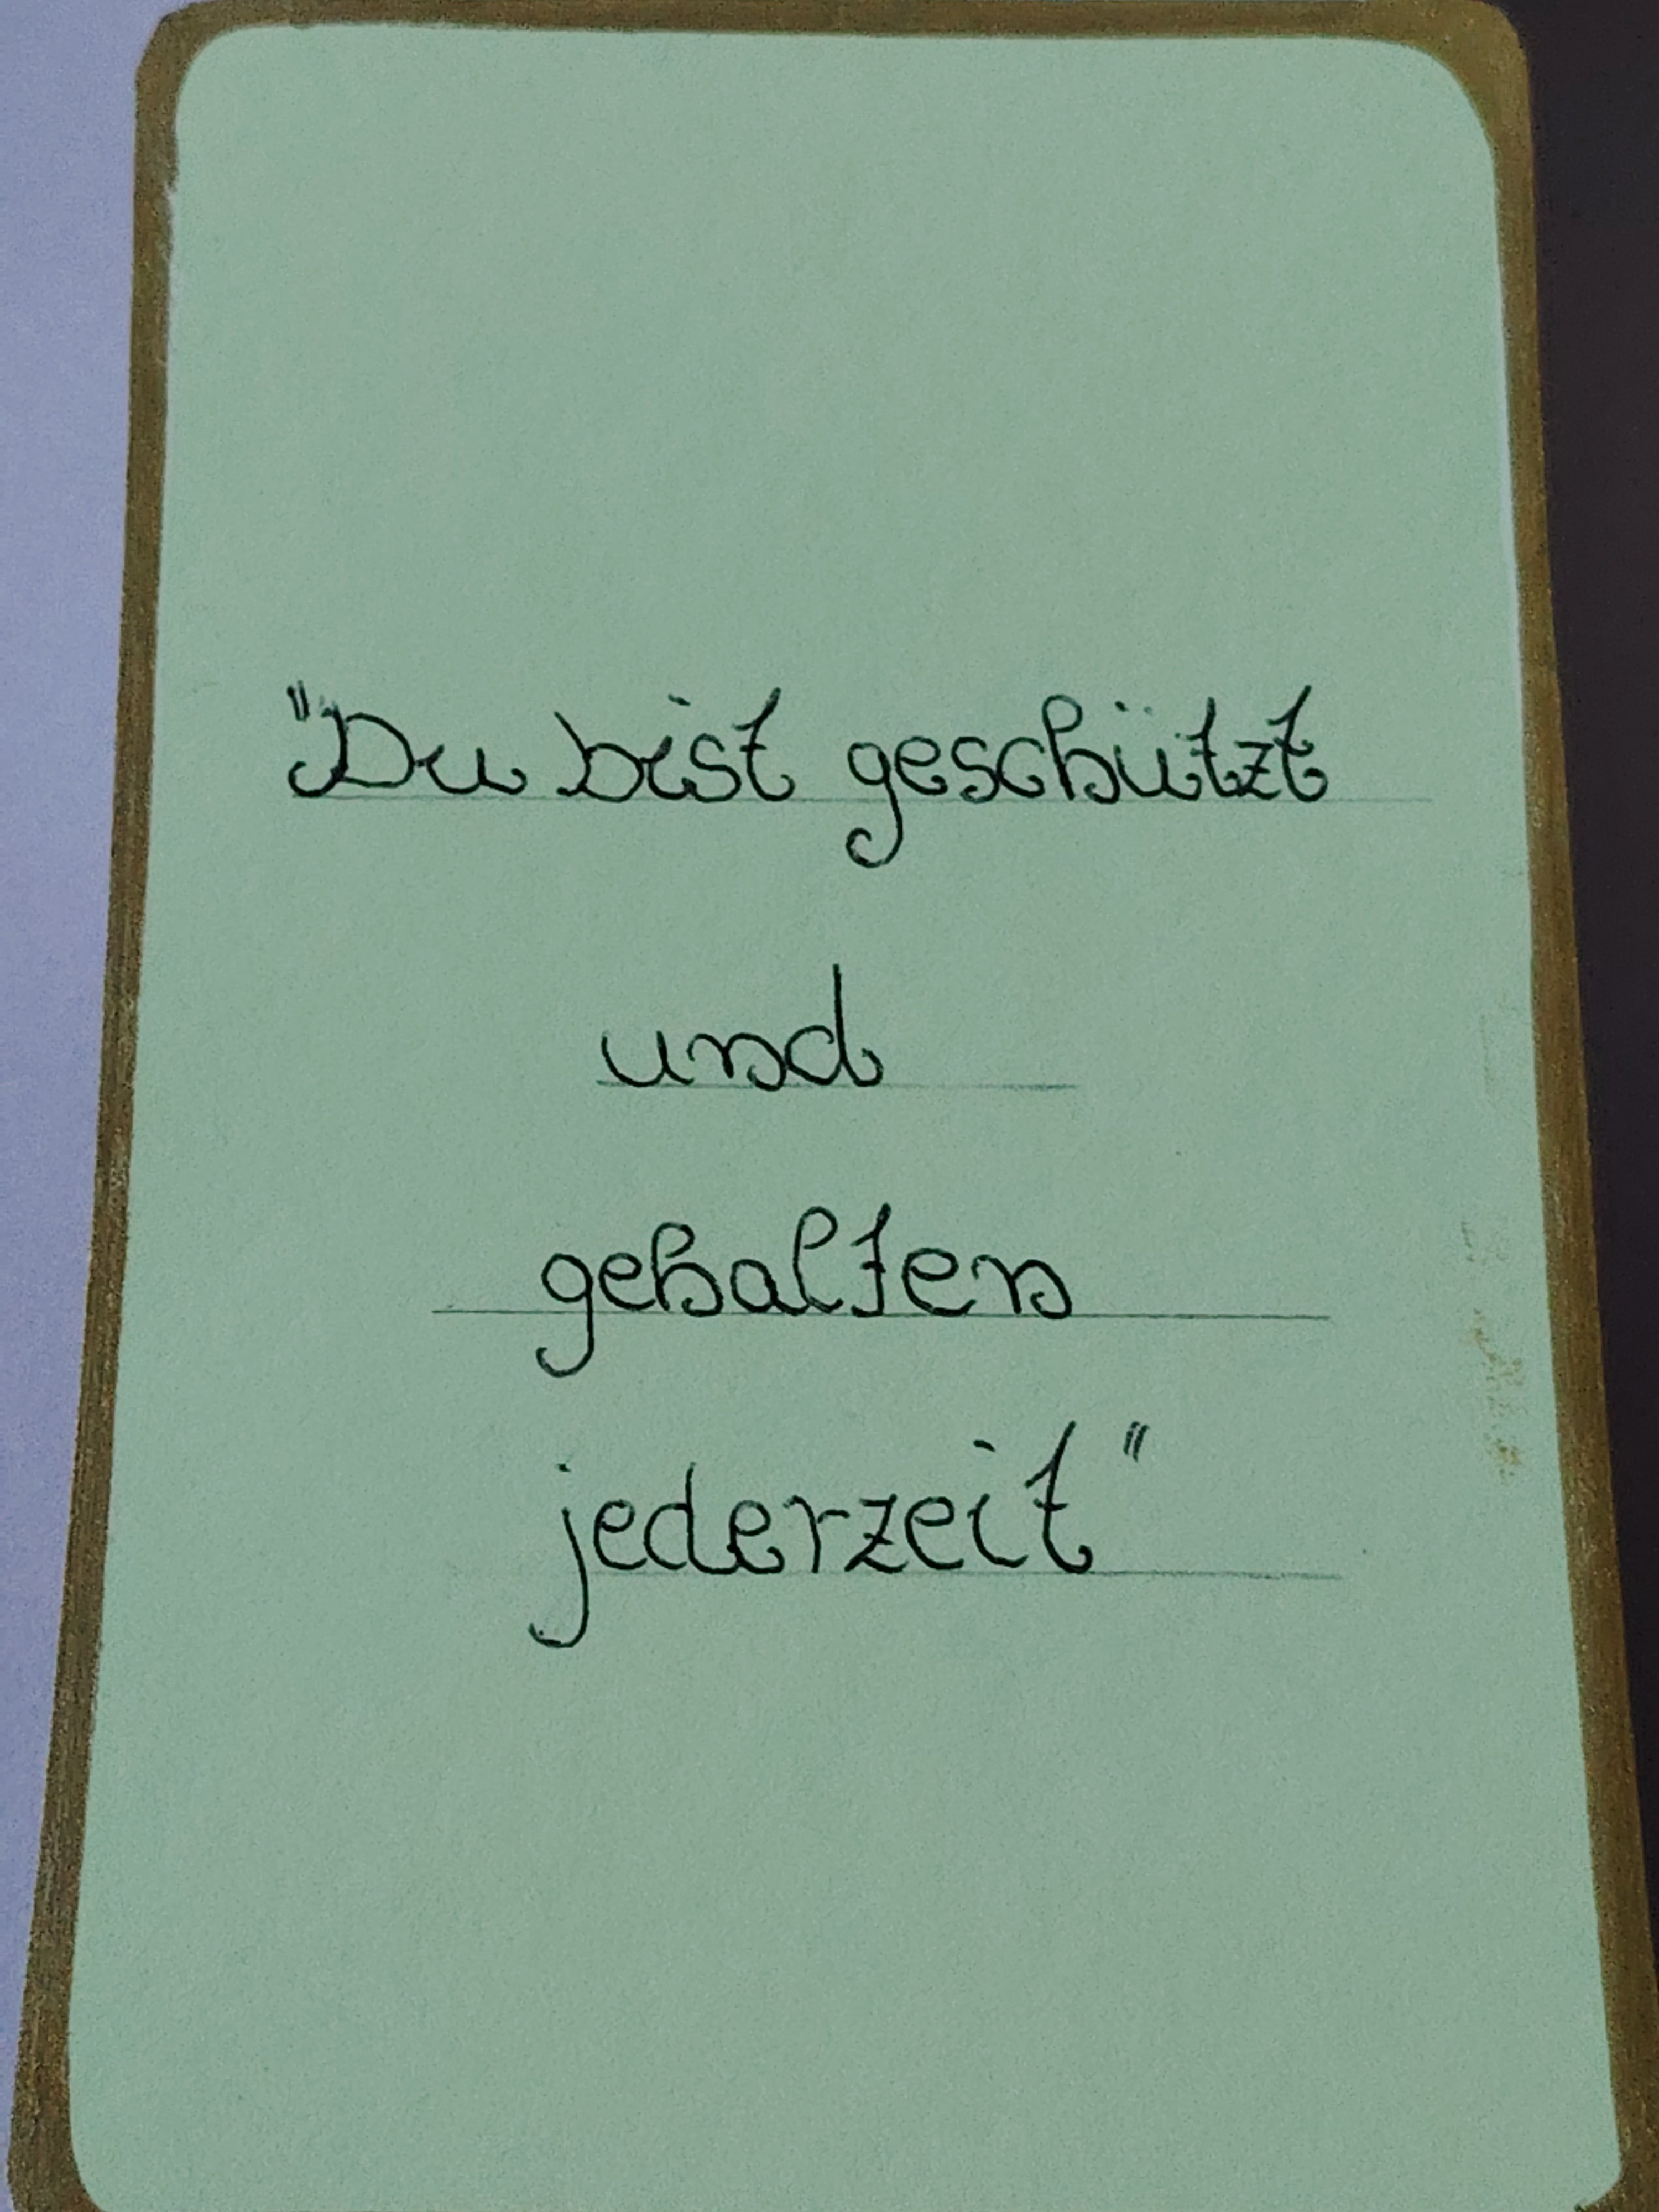 "Du bist geschützt
und
gehalten
jederzeit"